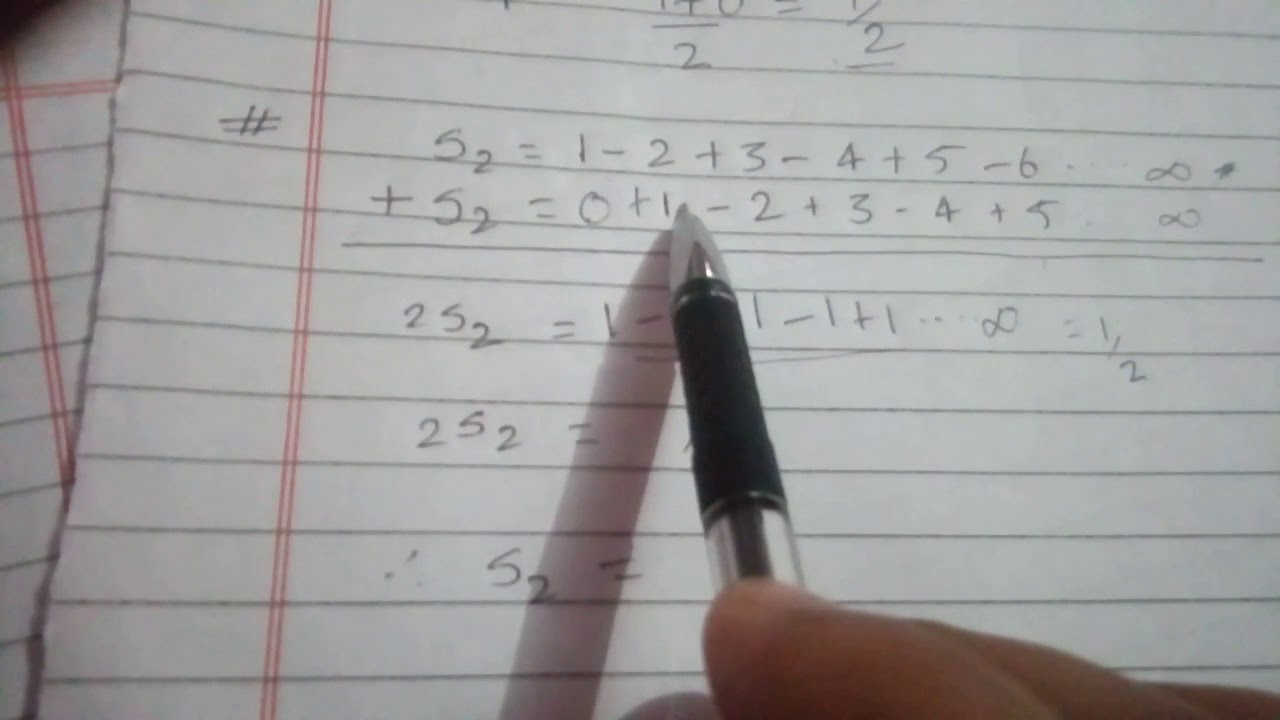 1+0/2 = 1/2
# S₂ = 1 - 2 + 3 - 4 + 5 - 6 .. ... ∞
+ S₂ = 0 + 1 - 2 + 3 - 4 + 5 .. ∞
2S₂ = 1 - 1 - 1 + 1 .... ∞ = 1/2
2S₂ =
∴ S₂ =